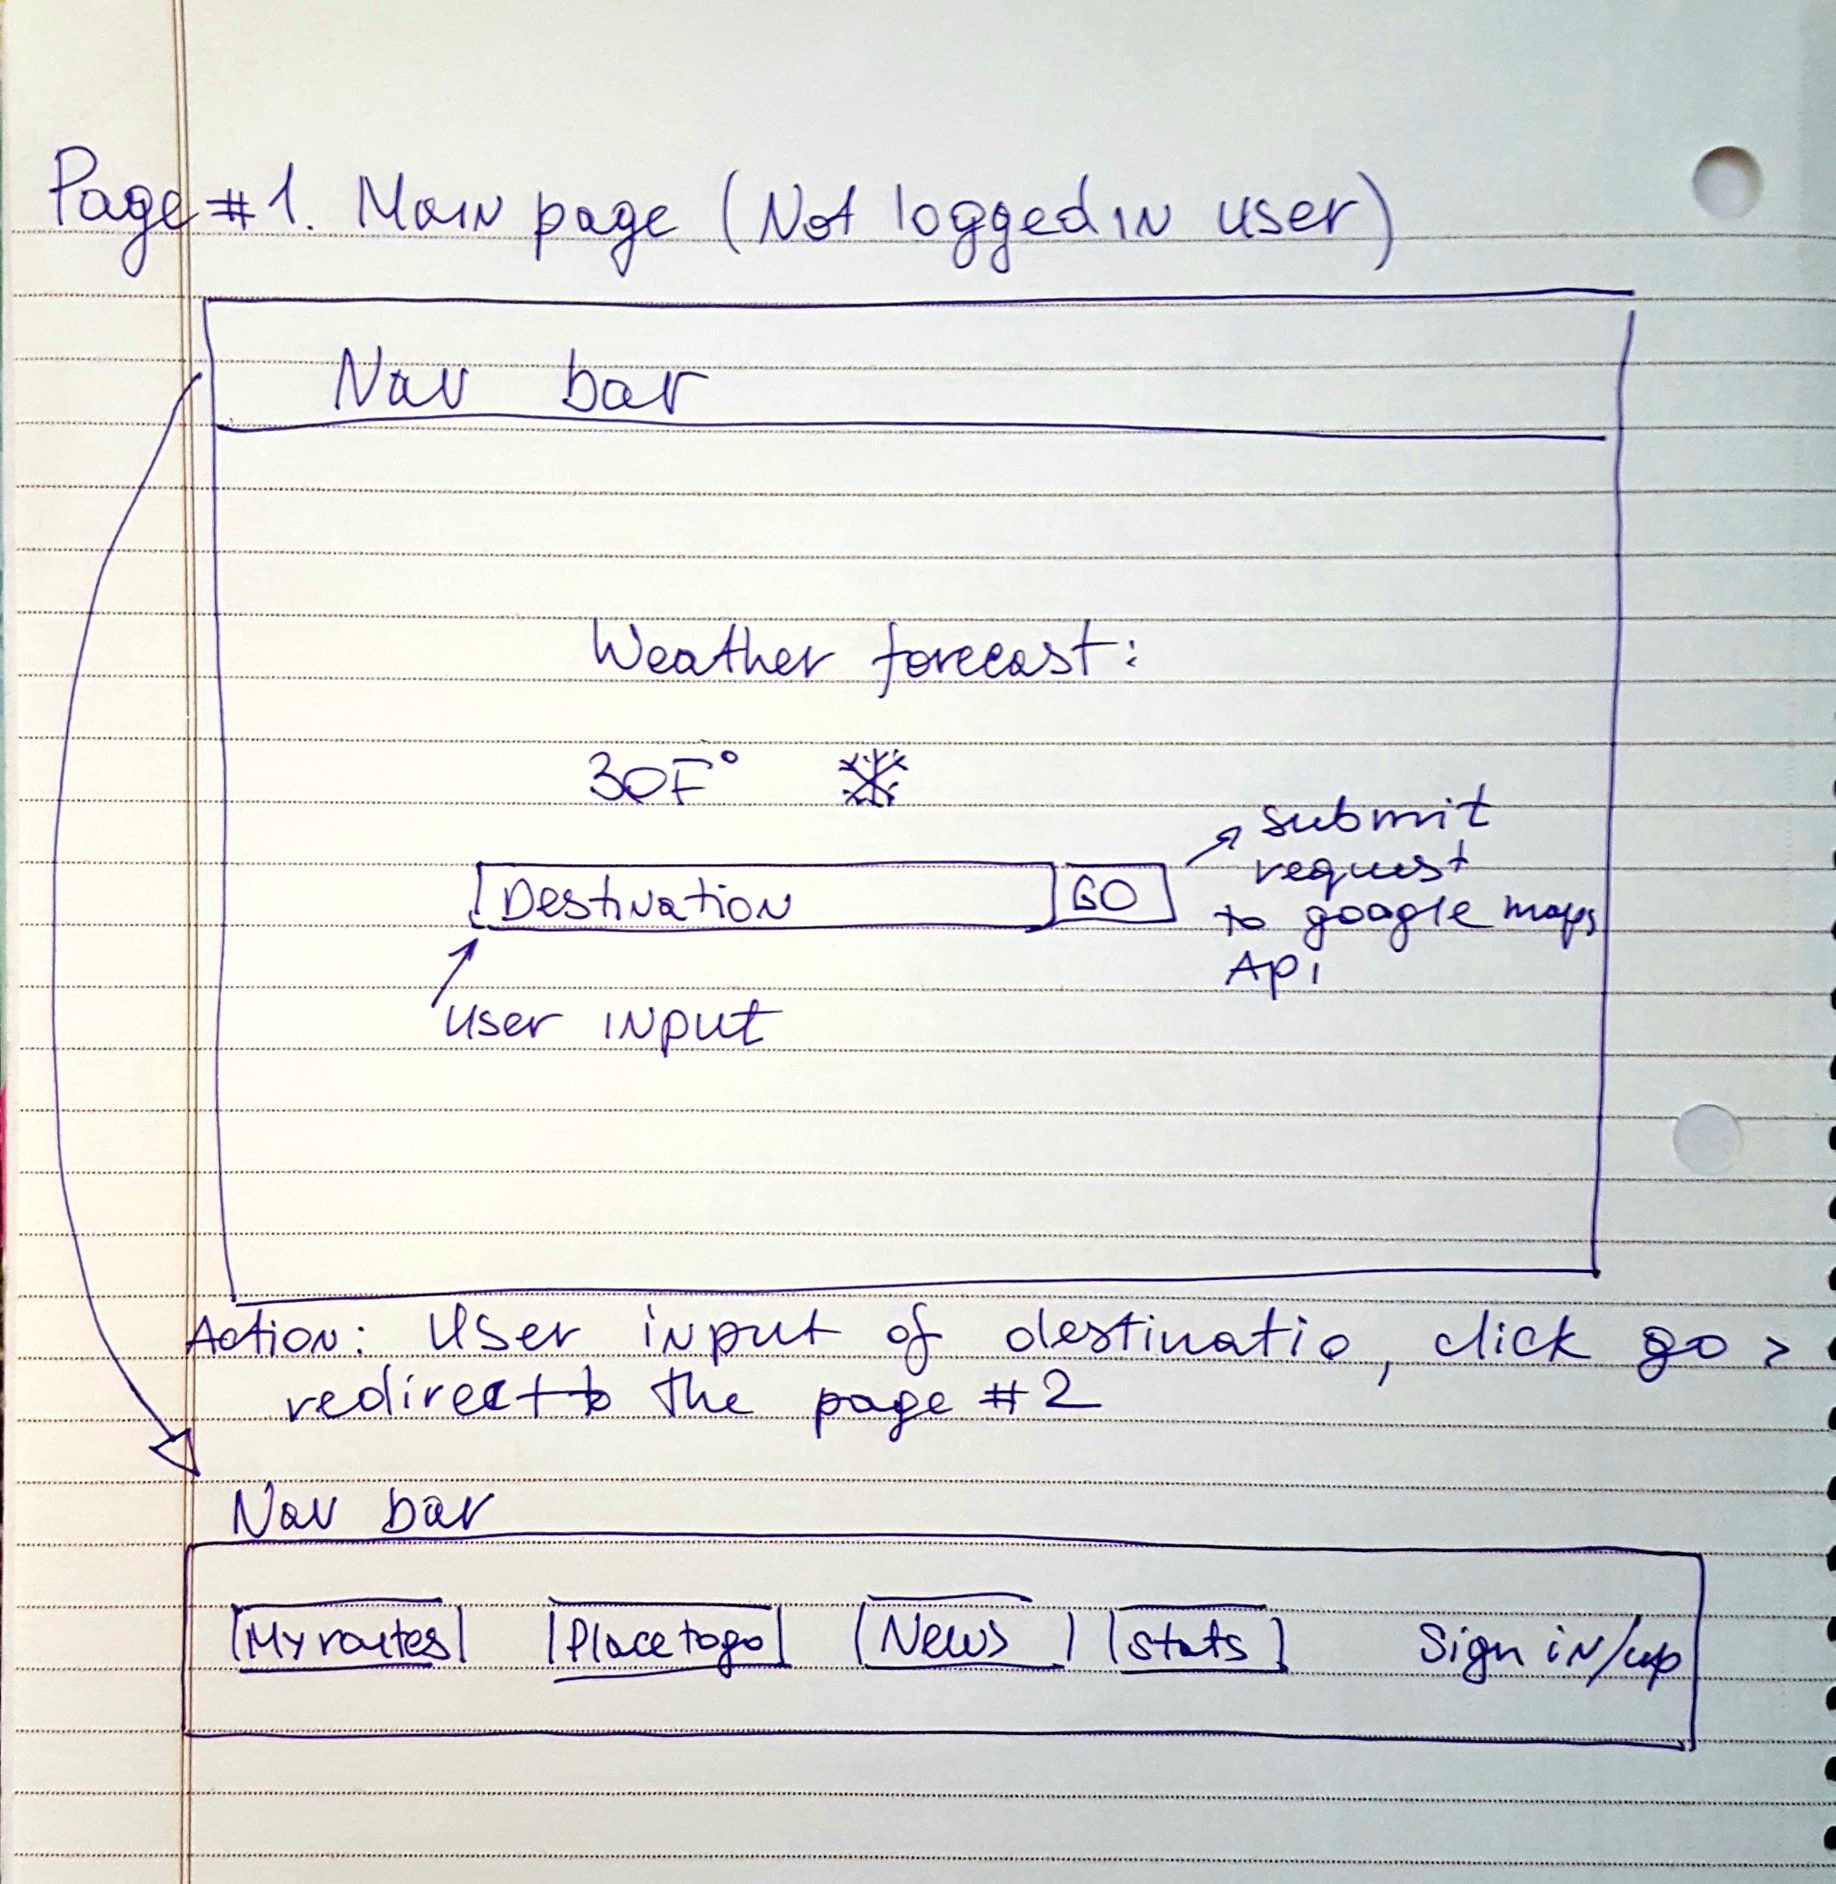 Page #1. Main page (Not logged in user)
Nav bar
Weather forecast:
30F°
submit
request
to google maps
Api
Destination GO
user input
Action: User input of destinatio, click go >
redirect to the page #2
Nav bar
My routes Place to go News Stats Sign in/up